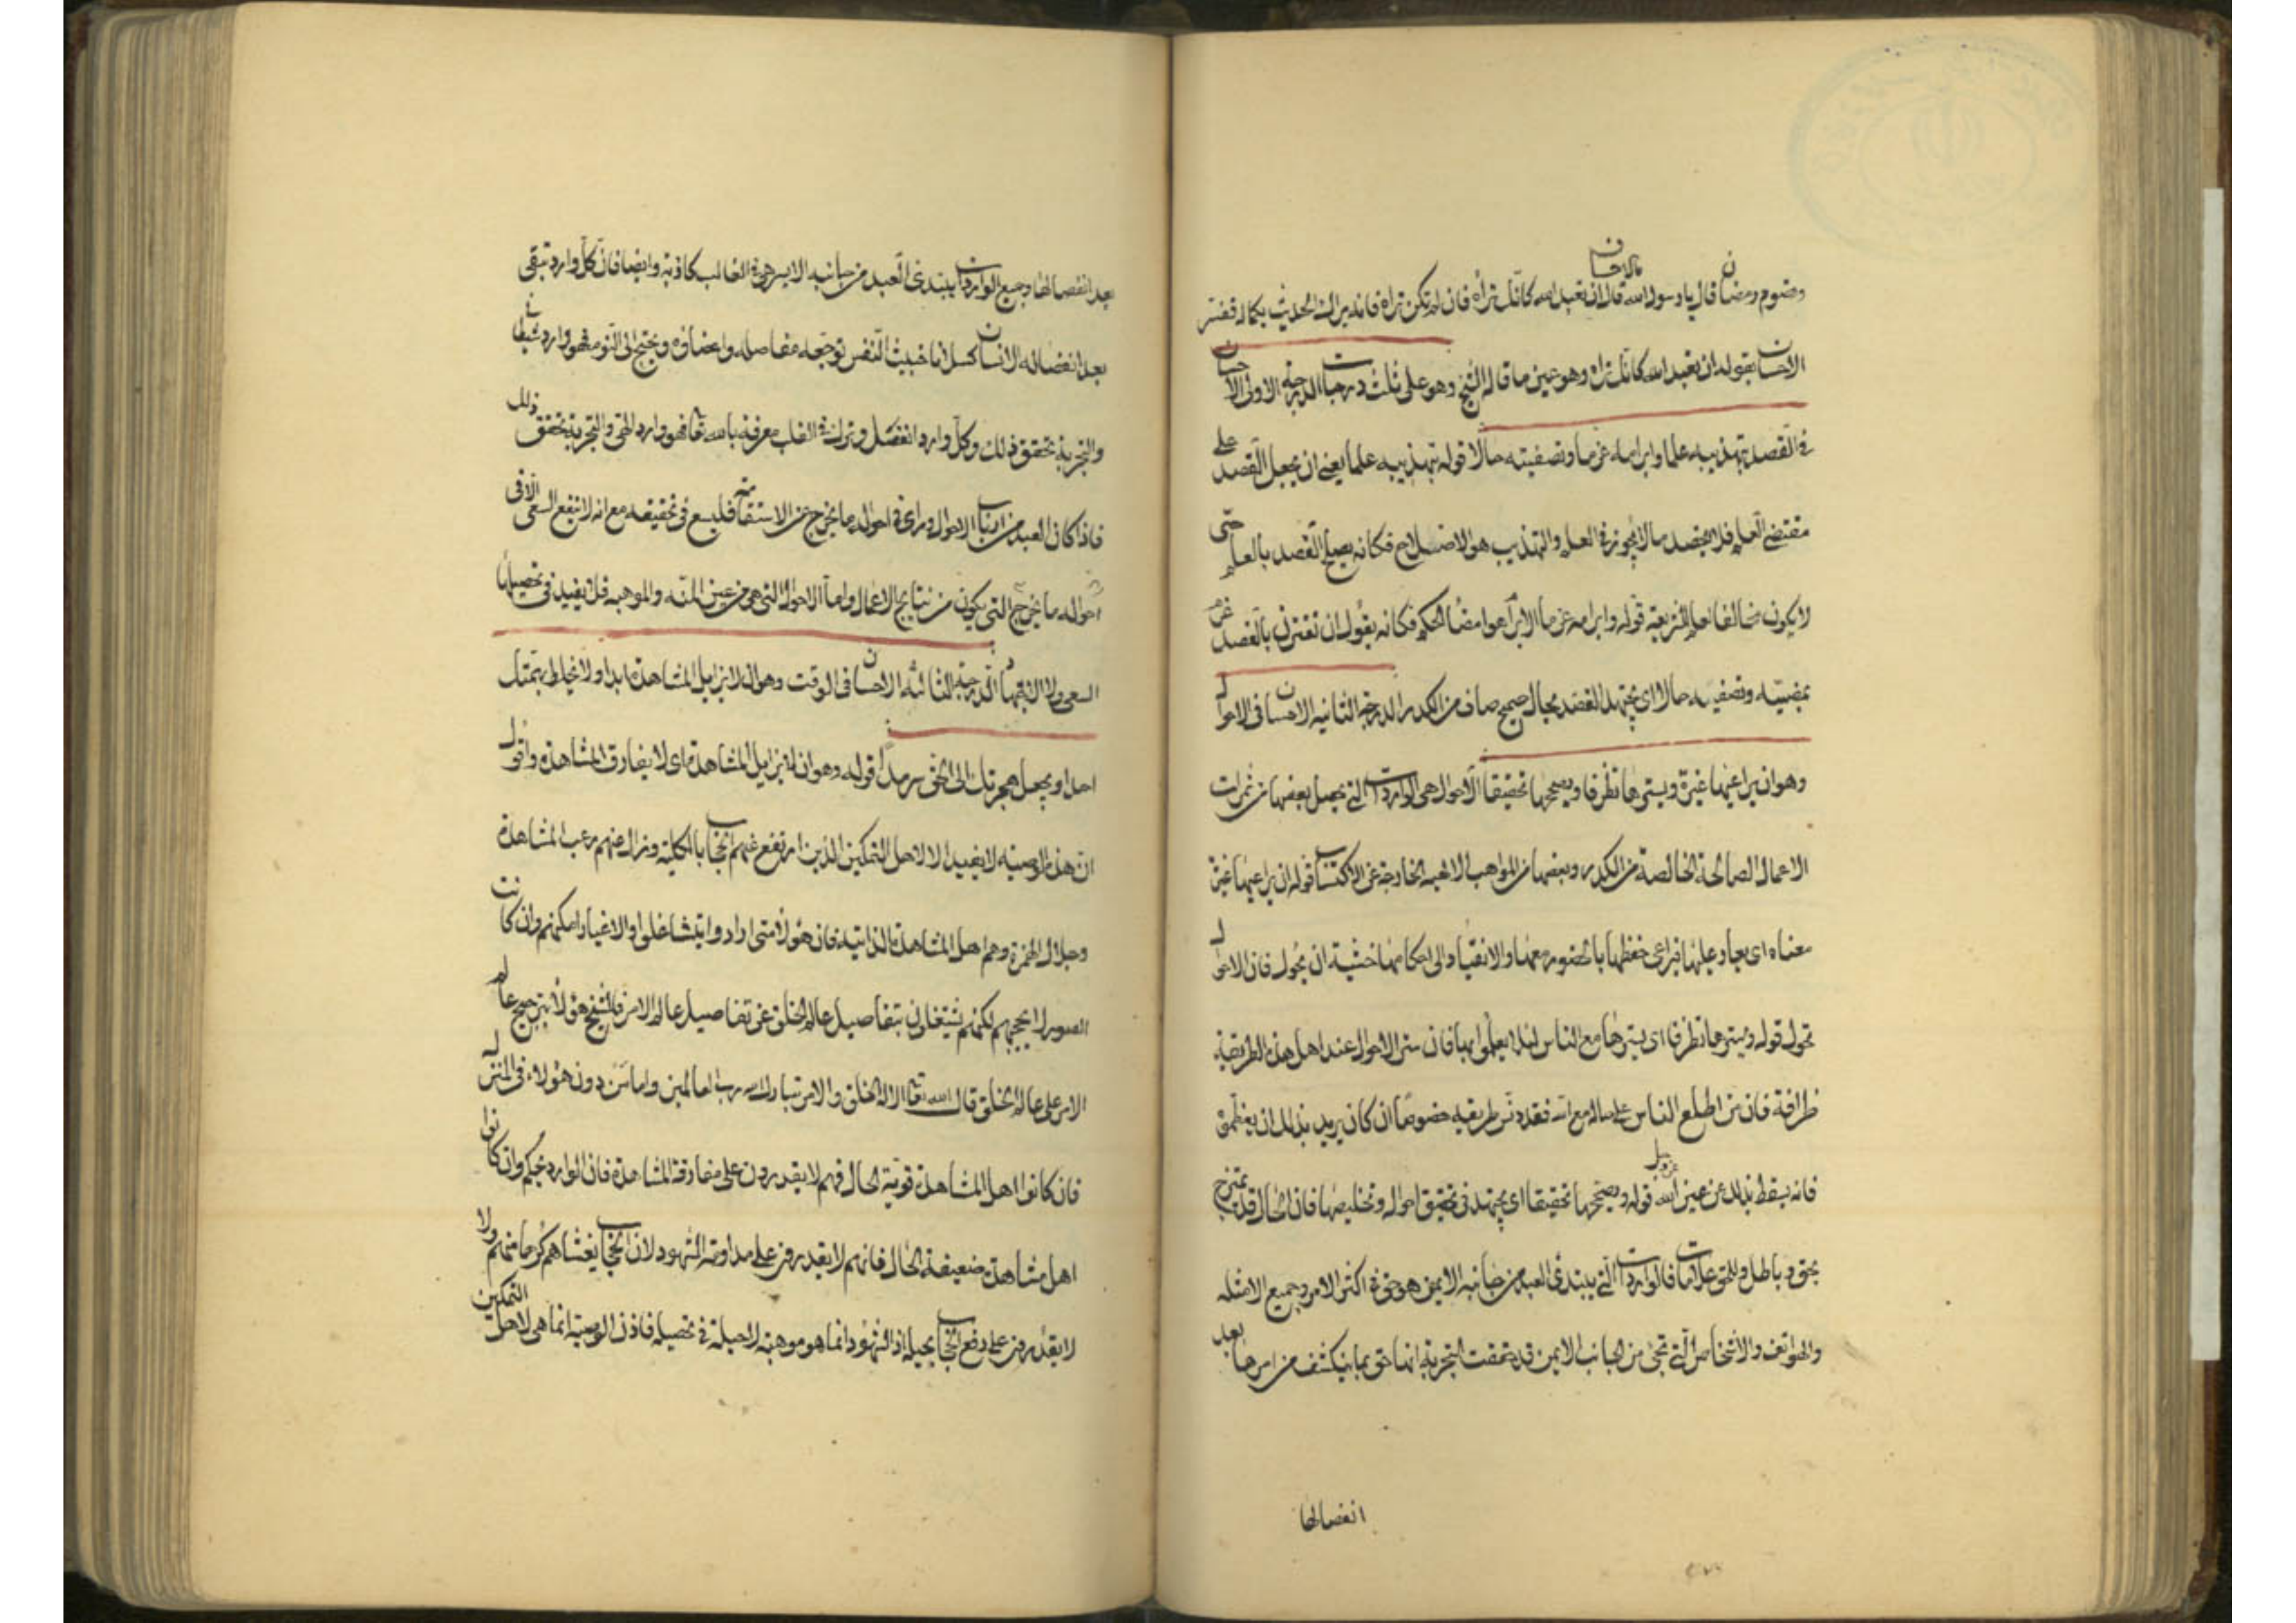 وصوم رمضان قال يا رسول الله ما الاحسان قال ان تعبد الله كانك تراه فان لم تكن تراه فانه يراك الحديث بكماله ففسر
الاحسان بقوله ان تعبد الله كانك تراه وهو عين ما قاله الشيخ وهو على ثلث درجات الدرجة الاولى الاحسان
فى القصد بتهذيبه علما وابرامه عزما وتصفيته حالا قوله تهذيبه علما يعنى ان يجعل القصد على
مقتضى العلم فلا يقصد ما لا يجوز فى العلم والتهذيب هو الاصلاح فكانه يصلح القصد بالعلم حتى
لا يكون مخالفا لعلم الشريعة قوله وابرامه عزما الابرام هو امضا الحكم فكانه يقول ان تقترن بالقصد عزم
يمضيه وتصفيته حالا اى يجتهد القصد بحال صحيح صاف من الكدر الدرجة الثانية الاحسان فى الاحوال
وهو ان يراعيها غيرة ويسترها تظرفا ويصححها تحقيقا الاحوال هى الواردات التى يحصل بعضها من ثمرات
الاعمال الصالحة الخالصة من الكدر وبعضها من المواهب الالهية الخارجة عن الاكتساب قوله ان يراعيها غيرة
معناه اى يغار عليها فيراعى حفظها بالحضور معها والانقياد الى احكامها خشية ان يحول فان الاحوال
تحول قوله ويسترها تظرفا اى يسترها من الناس لئلا يعلموا بها فان ستر الاحوال عند اهل هذه الطريقة
ظرافة فان من اطلع الناس على حاله مع الله فقد دنس طريقه خصوصا ان كان يريد بذلك ان يعظموه
فانه يسقط بذلك من عين الله عز وجل قوله ويصححها تحقيقا اى يجتهد فى تحقيق احواله وتخليصها فان الحال قد يمتزج
بحق وباطل وللحق علامات فالواردات التى يبتدئ العبد من جانبه الايمن هو حق فى اكثر الامر وجميع الامثله
والهواتف والاشخاص التى تجئ من الجانب الايمن قد حققت التجربة انها حق بما ينكشف من اسرها بعد
انفصالها
بعد انفصالها وجميع الواردات يبتدئ العبد من جانبه الايسر هى فى الغالب كاذبة وايضا فان كل وارد تبقى
بعد انفصاله الانسان كسلانا خبيث النفس توجعه مفاصله واعضاؤه ويحتج الى النوم فهو وارد شيطانى
والتجربة تحقق ذلك وكل وارد انفصل وترك فى القلب معرفة بالله تعالى فهو وارد الهى والتجربة تحقق ذلك
فاذا كان العبد من ارباب الاحوال وراى فى احواله ما يخرج عن الاستقامة فليسع فى تحقيقه مع انه لا ينفع السعى الا فى
احواله ما يخرج التى يكون من نتايج الاعمال واما الاحوال التى هى من عين المنة والموهبة فلا يفيد فى تحصيلها
السعى ولا الدرجة الثالثة الاحسان فى الوقت وهو ان لا تزايل المشاهدة ابدا ولا تخلط بهمتك
احدا ويجعل هجرتك الى الحق سرمدا قوله وهو ان لا تزايل المشاهدة اى لا يفارق المشاهدة واقول
ان هذه الوصية لا يفيد الا لاهل التمكين الذين ارتفع عنهم الحجاب بالكلية وزال عنهم رعب المشاهدة
وجلال الحضرة وهم اهل المشاهدة الذاتية فان هؤلاء متى ارادوا ان يتشاغلوا والاغيار امكنهم وان كانت
الصور لا تحجبهم لكنهم يشتغلون بتفاصيل عالم الخلق عن تفاصيل عالم الامر فالشيخ هؤلاء بترجيح عالم
الامر على عالم الخلق قال الله تعالى الا له الخلق والامر تبارك الله رب العالمين واما من دون هؤلاء فى المنزل
فان كانوا اهل المشاهدة قوية الحال فهم لا يقدرون على مفارقة المشاهدة فان الوارد يحكم وان كانوا
اهل مشاهدة ضعيفة الحال فانهم لا يقدرون على مداومة الشهود لان الحجاب يغشاهم كرها منهم ولا
لا يقدرون على دفع الحجاب بحيلة اذ الشهود انما هو موهبة لا حيلة فى تحصيله فاذن الوصية انما هى لاهل التمكين